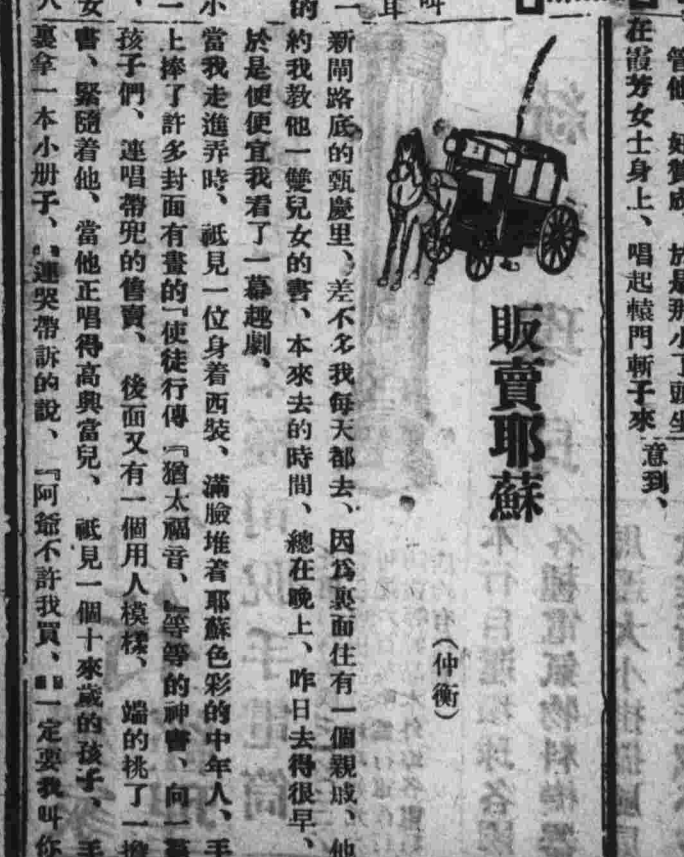 在霞芳女士身上、唱起轅門斬子來
意到、
販賣耶蘇
（仲衡）
新閘路底的甄慶里、差不多我每天都去、因爲裏面住有一個親戚、他
約我教他一雙兒女的書、本來去的時間、總在晚上、昨日去得很早、
於是便便宜我看了一幕趣劇、
當我走進弄時、祗見一位身着西裝、滿臉堆着耶蘇色彩的中年人、手
上捧了許多封面有畫的『使徒行傳『猶太福音、』等等的神書、向一羣
孩子們、連唱帶兜的售賣、後面又有一個用人模樣、端的挑了一擔
書、緊隨着他、當他正唱得高興當兒、祗見一個十來歲的孩子、手
裏拿一本小册子、連哭帶訴的說、『阿爺不許我買、一定要我叫你